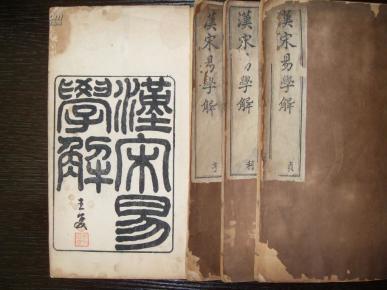 漢宋易
學解
漢宋易學解
亨
漢宋易學解
利
漢宋易學解
貞